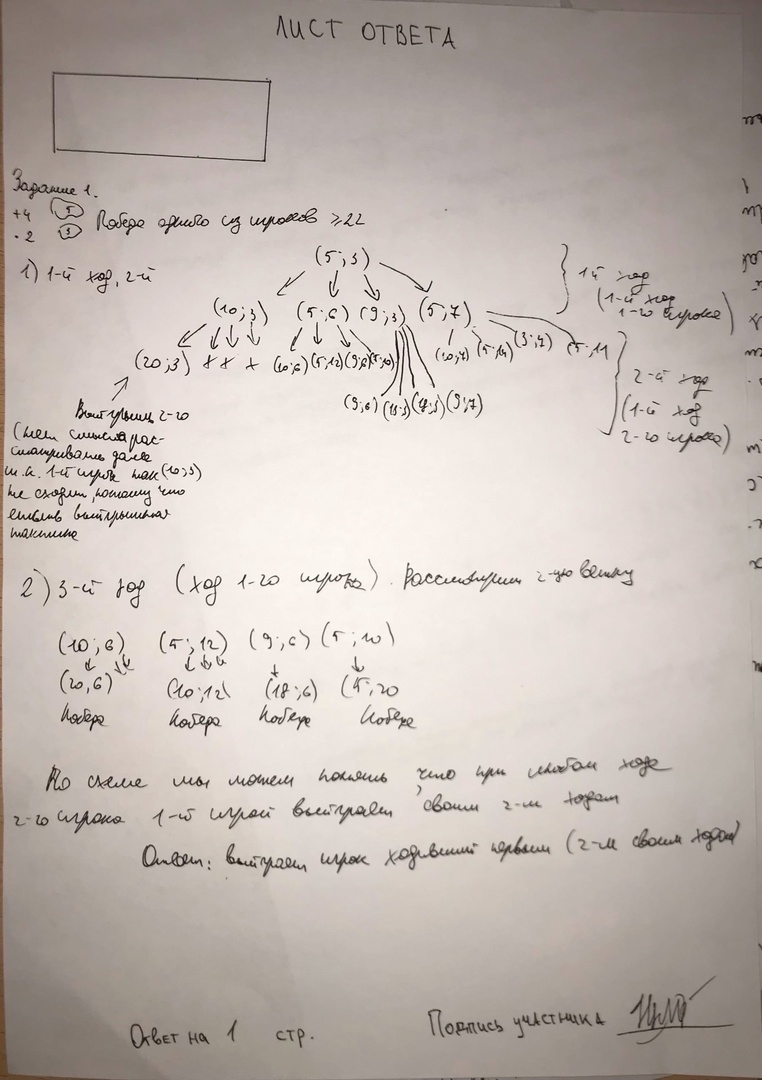 ЛИСТ ОТВЕТА
Задание 1.
+4 5 Победа одного из игроков ≥22
·2 3
1) 1-й ход, 2-й
(5;3)
(10;3) (5;6) (9;3) (5;7)
1й ход
(1-й ход
1-го игрока)
(20;3) (10;6) (5;12) (9;6) (5;10) (10;7) (5;14) (5;11
(9;6) (9;7)
2-й ход
(1-й ход
2-го игрока)
Выигрыш 2-го
(нет смысла рас-
сматривать далее
т.к. 1-й игрок так (10;3)
не сходит, потому что
выигрышная
тактика
2) 3-й ход (ход 1-го игрока). Рассмотрим 2-ую ветку
(10;6) (5;12) (9;6) (5;10)
(20,6) (10;12) (18;6) (5;20
Победа Победа Победа Победа
По схеме мы можем понять, что при любом ходе
2-го игрока 1-й игрок выиграет своим 2-м ходом
Ответ: выиграет игрок ходивший первым (2-м своим ходом)
Ответ на 1 стр.
Подпись участника